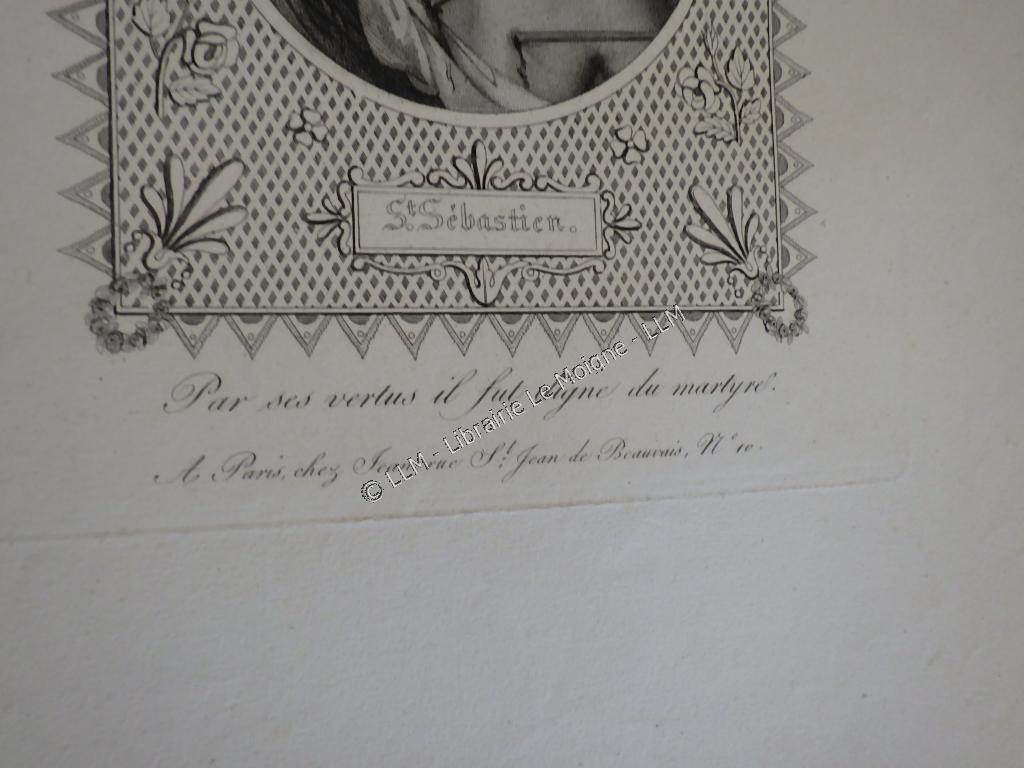 St. Sébastien.
Par ses vertus il fut digne du martyre.
A Paris, chez Jean, Rue St. Jean de Beauvais, N° 10.
© LLM - Librairie Le Moigne - LLM